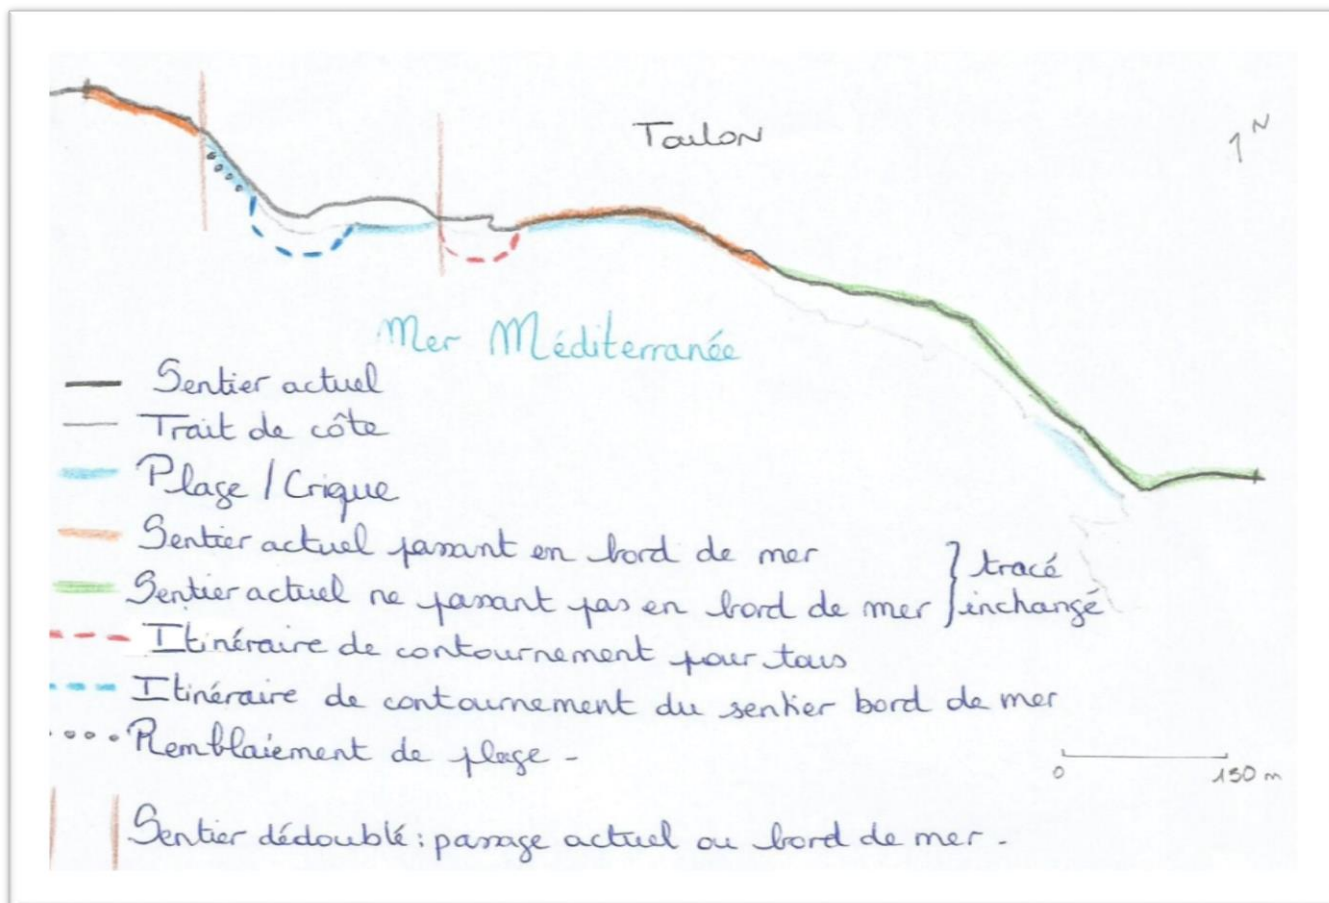 Toulon
N
Mer Méditerranée
Sentier actuel
Trait de côte
Plage / Crique
Sentier actuel passant en bord de mer
Sentier actuel ne passant pas en bord de mer
} tracé
inchangé
Itinéraire de contournement pour tous
Itinéraire de contournement du sentier bord de mer
Remblaiement de plage -
0 150 m
Sentier dédoublé : passage actuel ou bord de mer -